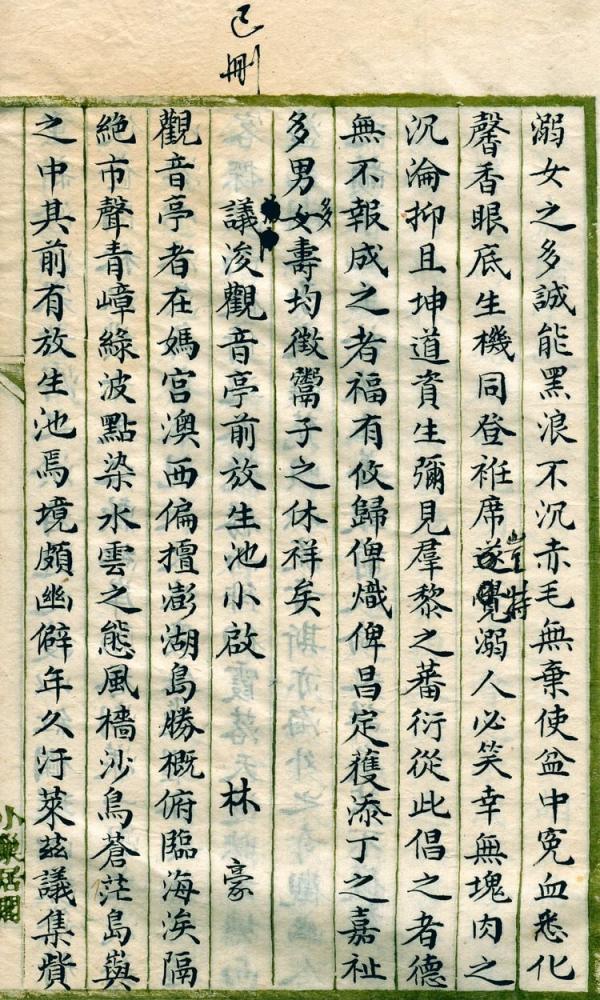 已刪
溺女之多誠能黑浪不沉赤毛無棄使盆中冤血悉化
馨香眼底生機同登袵席遂覺溺人必笑幸無塊肉之
豈特
沉淪抑且坤道資生彌見羣黎之蕃衍從此倡之者德
無不報成之者福有攸歸俾熾俾昌定獲添丁之嘉祉
多男女壽均徵鬻子之休祥矣
多
議浚觀音亭前放生池小啟 林豪
觀音亭者在媽宮澳西偏擅澎湖島勝概俯臨海涘隔
絕市聲青嶂綠波點染水雲之態風檣沙鳥蒼茫島嶼
之中其前有放生池焉境頗幽僻年久汙萊茲議集貲